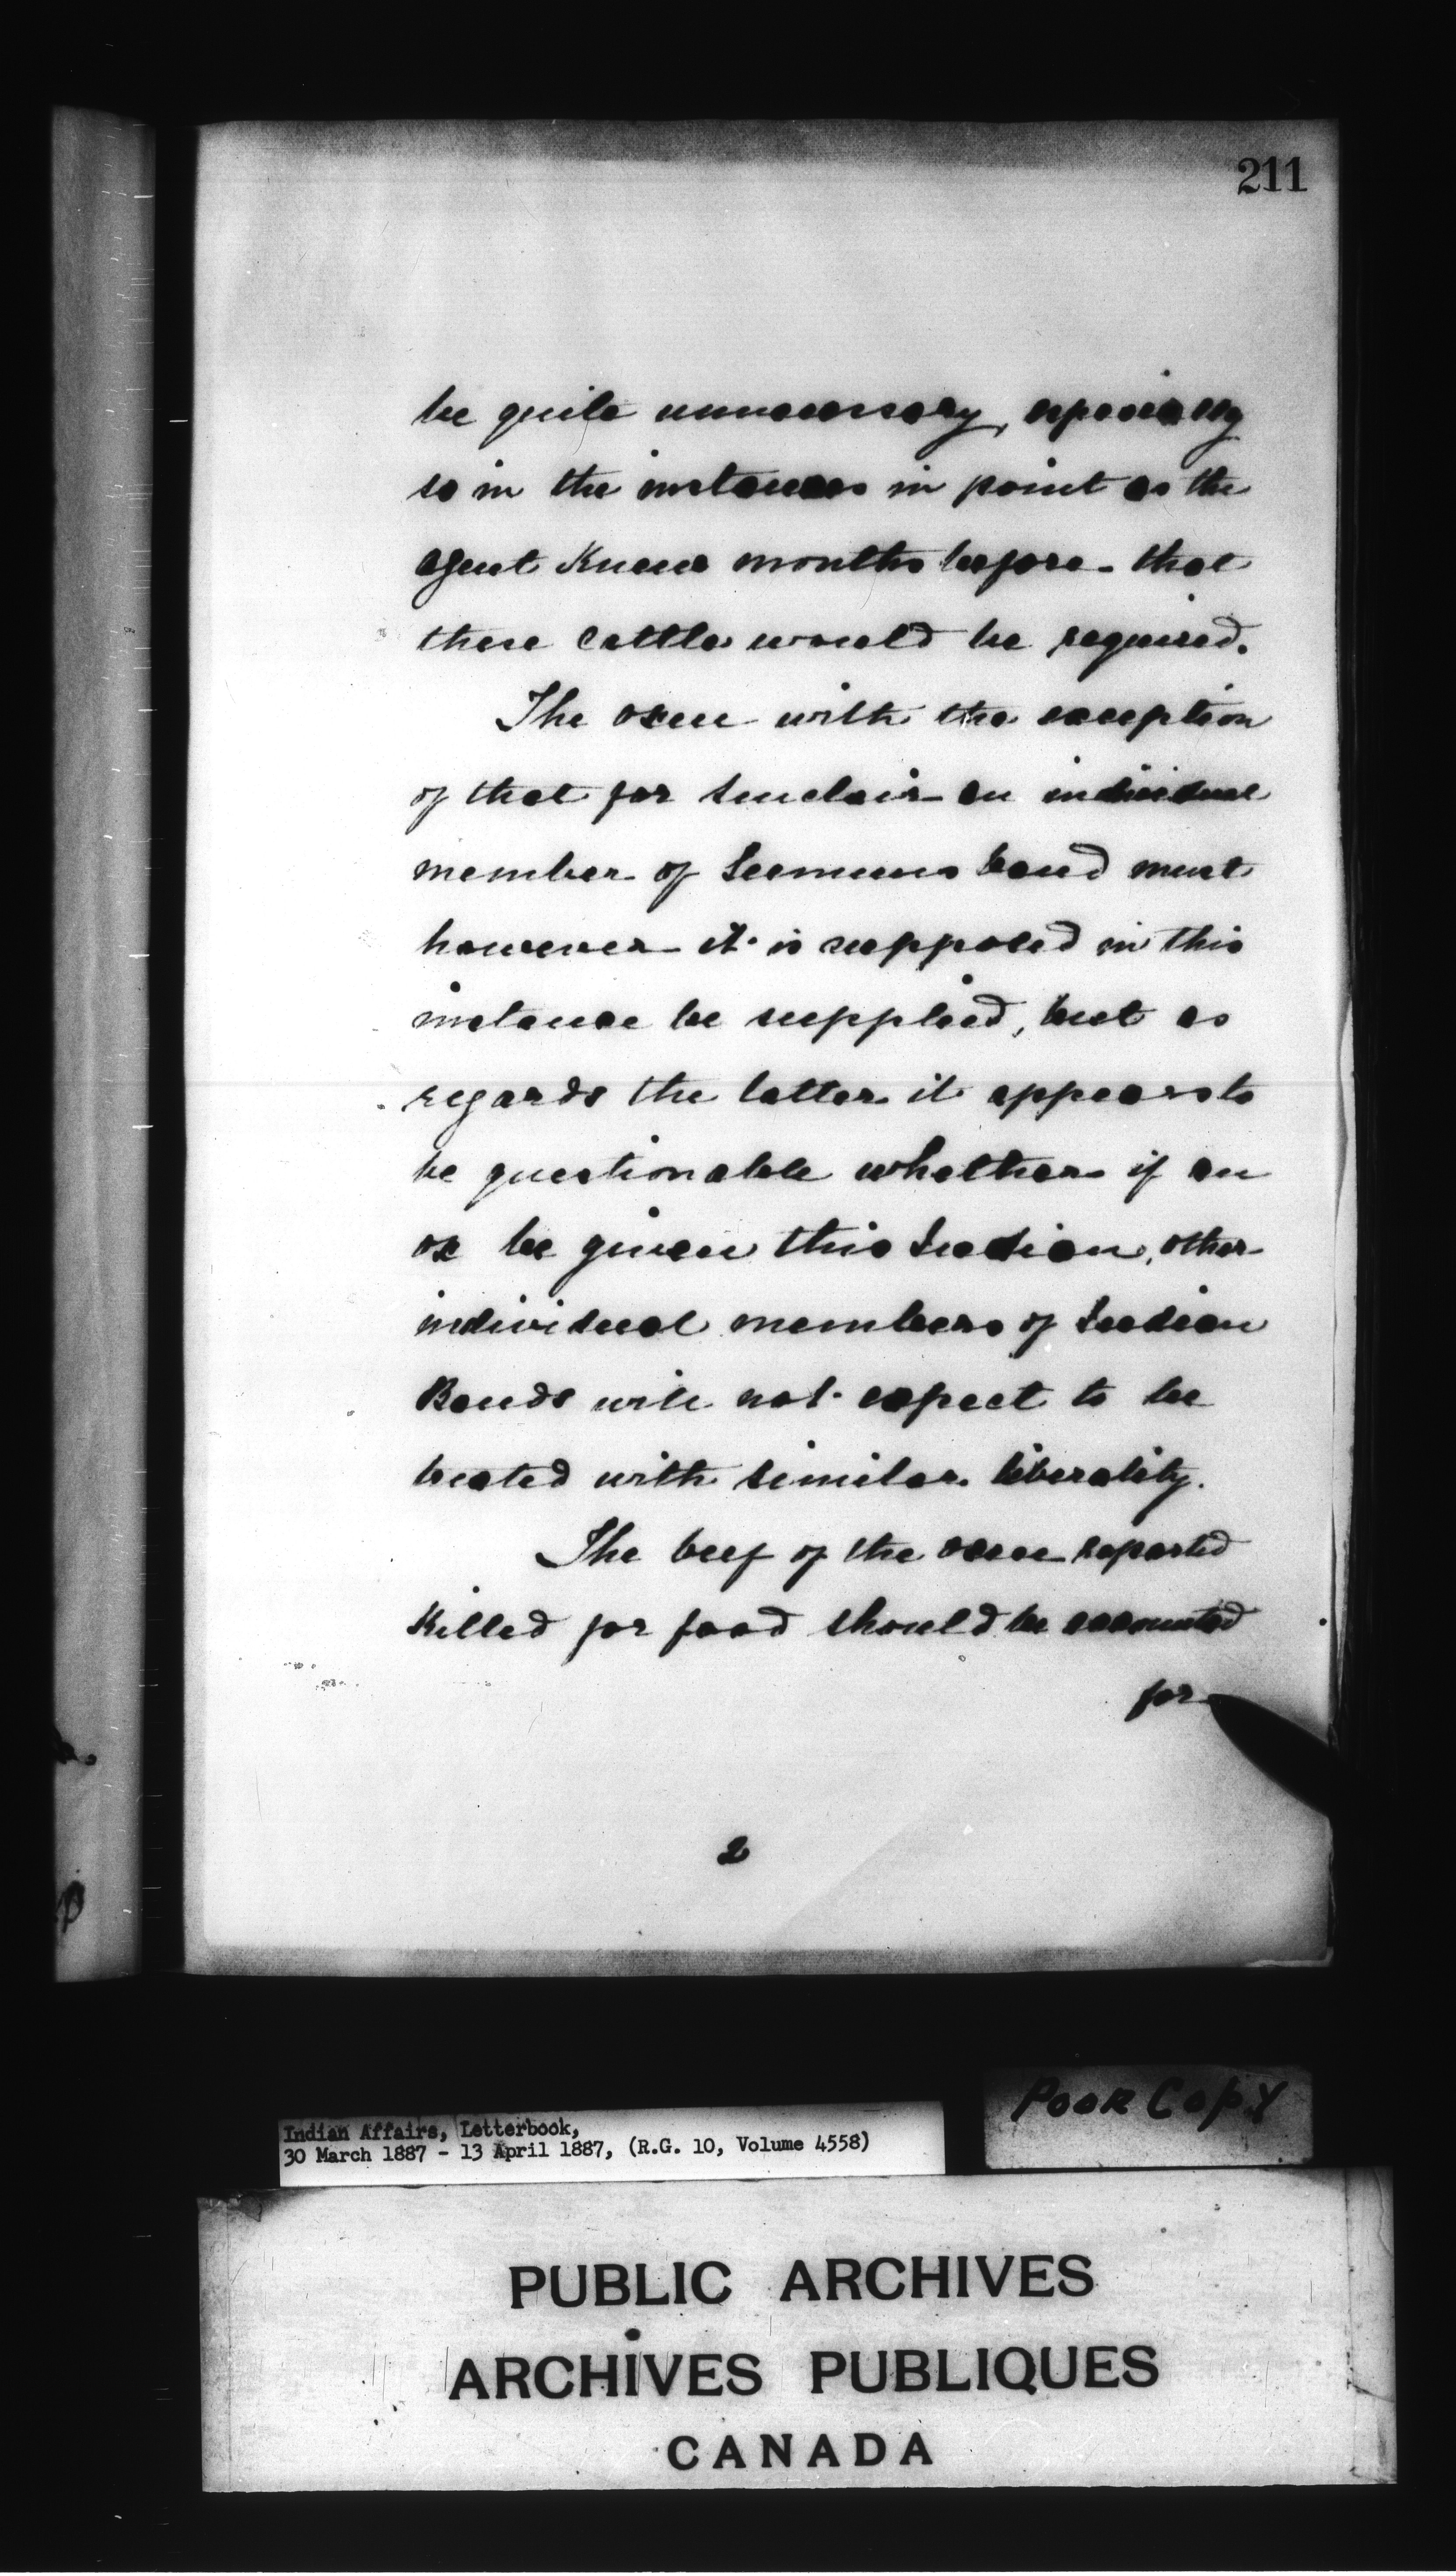 211
be quite unnecessary, especially
so in the instances in point as the
agent knew months before that
these cattle would be required.
The oxen with the exception
of that for Sinclair an individual
member of Seenums band must
however it is supposed in this
instance be supplied, but as
regards the latter it appears to
be questionable whether if an
ox be given this Indian, other
individual members of Indian
Bands will not expect to be
treated with similar liberality.
The beef of the oxen reported
Killed for food should be accounted
for
2
POOR COPY
Indian Affairs, Letterbook,
30 March 1887 - 13 April 1887, (R.G. 10, Volume 4558)
PUBLIC ARCHIVES
ARCHIVES PUBLIQUES
CANADA